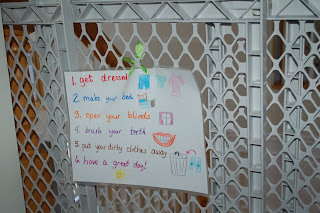 1. get dressed
2. make your bed
3. open your blinds
4. brush your teeth
5. put your dirty clothes away
6. have a great day!